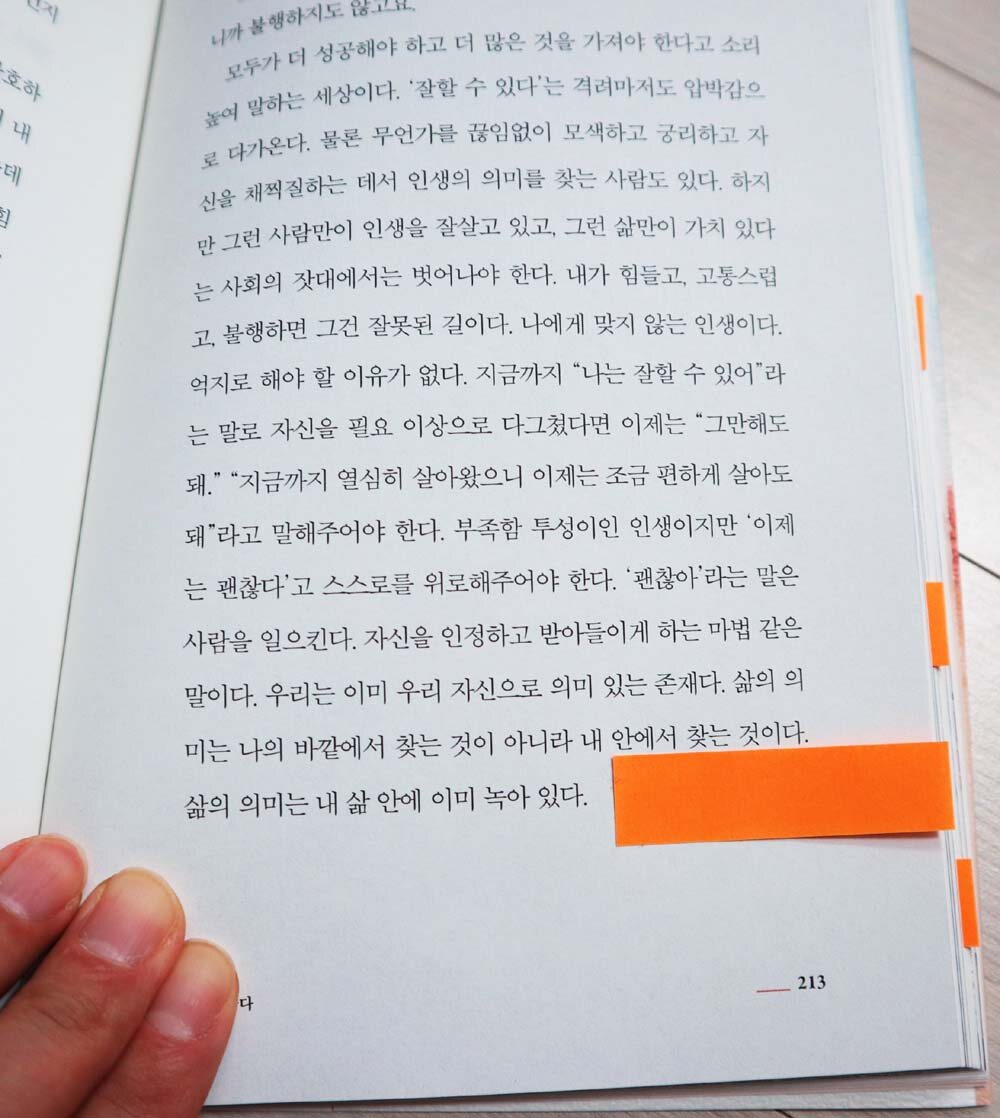 니까 불행하지도 않고요.
모두가 더 성공해야 하고 더 많은 것을 가져야 한다고 소리
높여 말하는 세상이다. ‘잘할 수 있다’는 격려마저도 압박감으
로 다가온다. 물론 무언가를 끊임없이 모색하고 궁리하고 자
신을 채찍질하는 데서 인생의 의미를 찾는 사람도 있다. 하지
만 그런 사람만이 인생을 잘살고 있고, 그런 삶만이 가치 있다
는 사회의 잣대에서는 벗어나야 한다. 내가 힘들고, 고통스럽
고, 불행하면 그건 잘못된 길이다. 나에게 맞지 않는 인생이다.
억지로 해야 할 이유가 없다. 지금까지 “나는 잘할 수 있어”라
는 말로 자신을 필요 이상으로 다그쳤다면 이제는 “그만해도
돼.” “지금까지 열심히 살아왔으니 이제는 조금 편하게 살아도
돼”라고 말해주어야 한다. 부족함 투성이인 인생이지만 ‘이제
는 괜찮다’고 스스로를 위로해주어야 한다. ‘괜찮아’라는 말은
사람을 일으킨다. 자신을 인정하고 받아들이게 하는 마법 같은
말이다. 우리는 이미 우리 자신으로 의미 있는 존재다. 삶의 의
미는 나의 바깥에서 찾는 것이 아니라 내 안에서 찾는 것이다.
삶의 의미는 내 삶 안에 이미 녹아 있다.
다
213